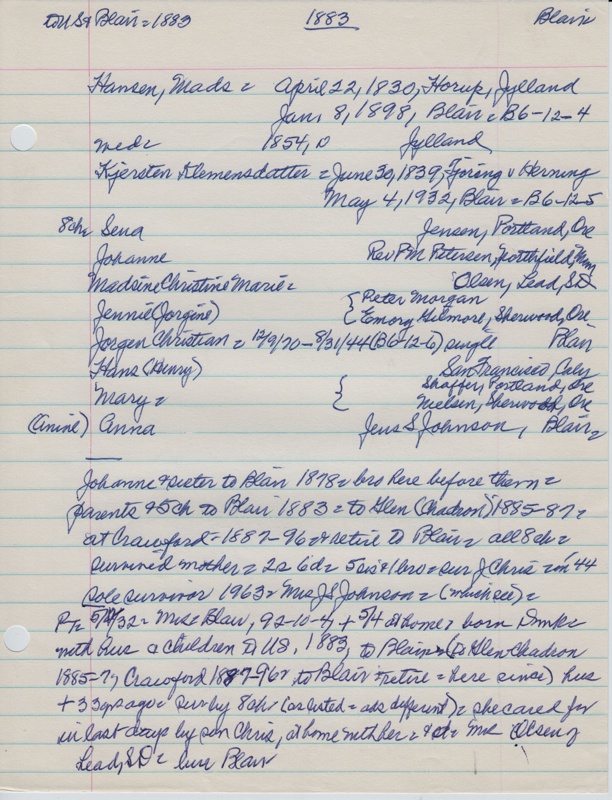 to US & Blair = 1883 1883 Blair
Hansen, Mads = April 22, 1830, Horup, Jylland
Jan. 8, 1898, Blair = B6-12-4
med = 1854, D Jylland
Kjersten Klemensdatter = June 30, 1839, Tjoring v Herning
May 4, 1932, Blair = B6-12-5
8ch = Sena Jensen, Portland, Ore
Johanne Rev P M Petersen, Northfield, Minn
Madsine Christine Marie = Olsen, Lead, S.D
Jennie (Jorgine) { Peter Morgan
Emory Gilmore, Sherwood, Ore
Jorgen Christian = 12/9/70 - 8/31/44 (B6-12-6) single Blair
Hans (Henry) San Francisco, Calif
Mary = { Shaffer, Portland, Ore
Nielsen, Sherwood, Ore
(Anine) Anna Jens S Johnson, Blair =
Johanne & sister to Blair 1878 = bro here before them =
parents & 5 ch to Blair 1883 = to Glen (Chadron) 1885-87 =
at Crawford - 1887-96 & retire to Blair = all 8 ch =
survived mother = 2s 6d = 5 sis & 1 bro = sur J Chris = in '44
sole survivor 1963 = Mrs J S Johnson = (which see) =
5/ /32 = Mrs = Blair, 92-10-4, + 5/4 at home = born Dmk =
with hus & children to US, 1883, to Blair = (to Glen-Chadron
1885-7, Crawford 1887-96 to Blair = retire = here since) hus
+ 33 yrs ago = sur by 8 ch (as listed = ads different) = she cared for
in last days by son Chris, at home with her = & d = Mrs Olsen of
Lead, S.D = bur Blair